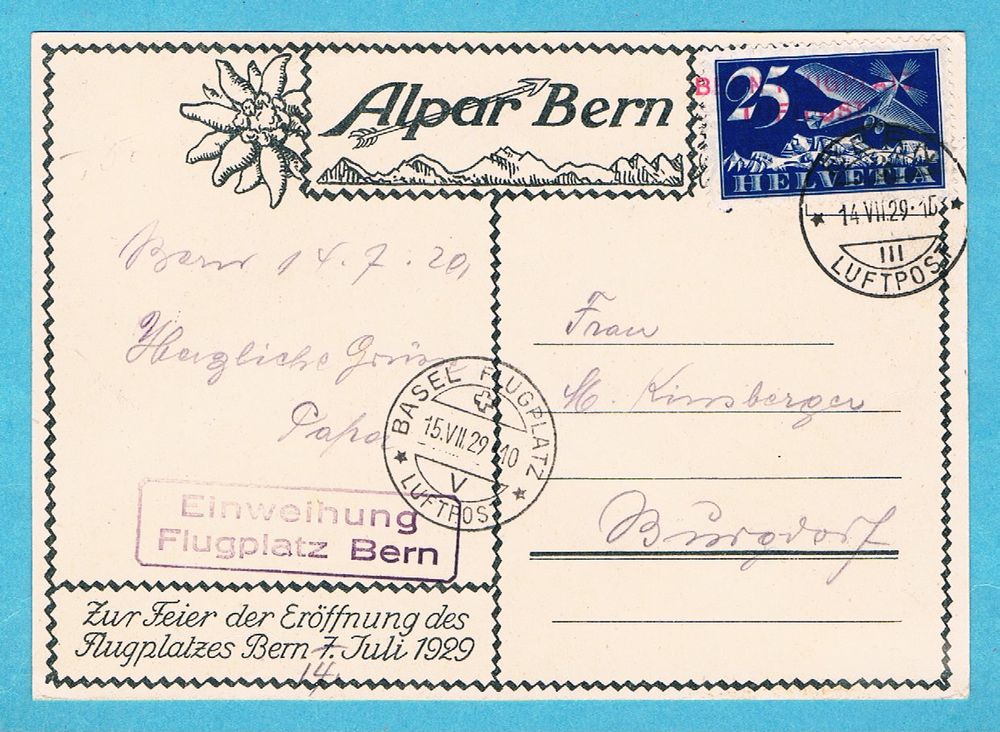 Alpar Bern
25
HELVETIA
14 VII.29-15
III
LUFTPOST
Bern 14.7.29,
Herzliche Grüsse
Papa
Frau
M. Kinsberger
Burgdorf
BASEL FLUGPLATZ
15.VII.29 10
V
LUFTPOST
Einweihung
Flugplatz Bern
Zur Feier der Eröffnung des
Flugplatzes Bern 7. Juli 1929
14.